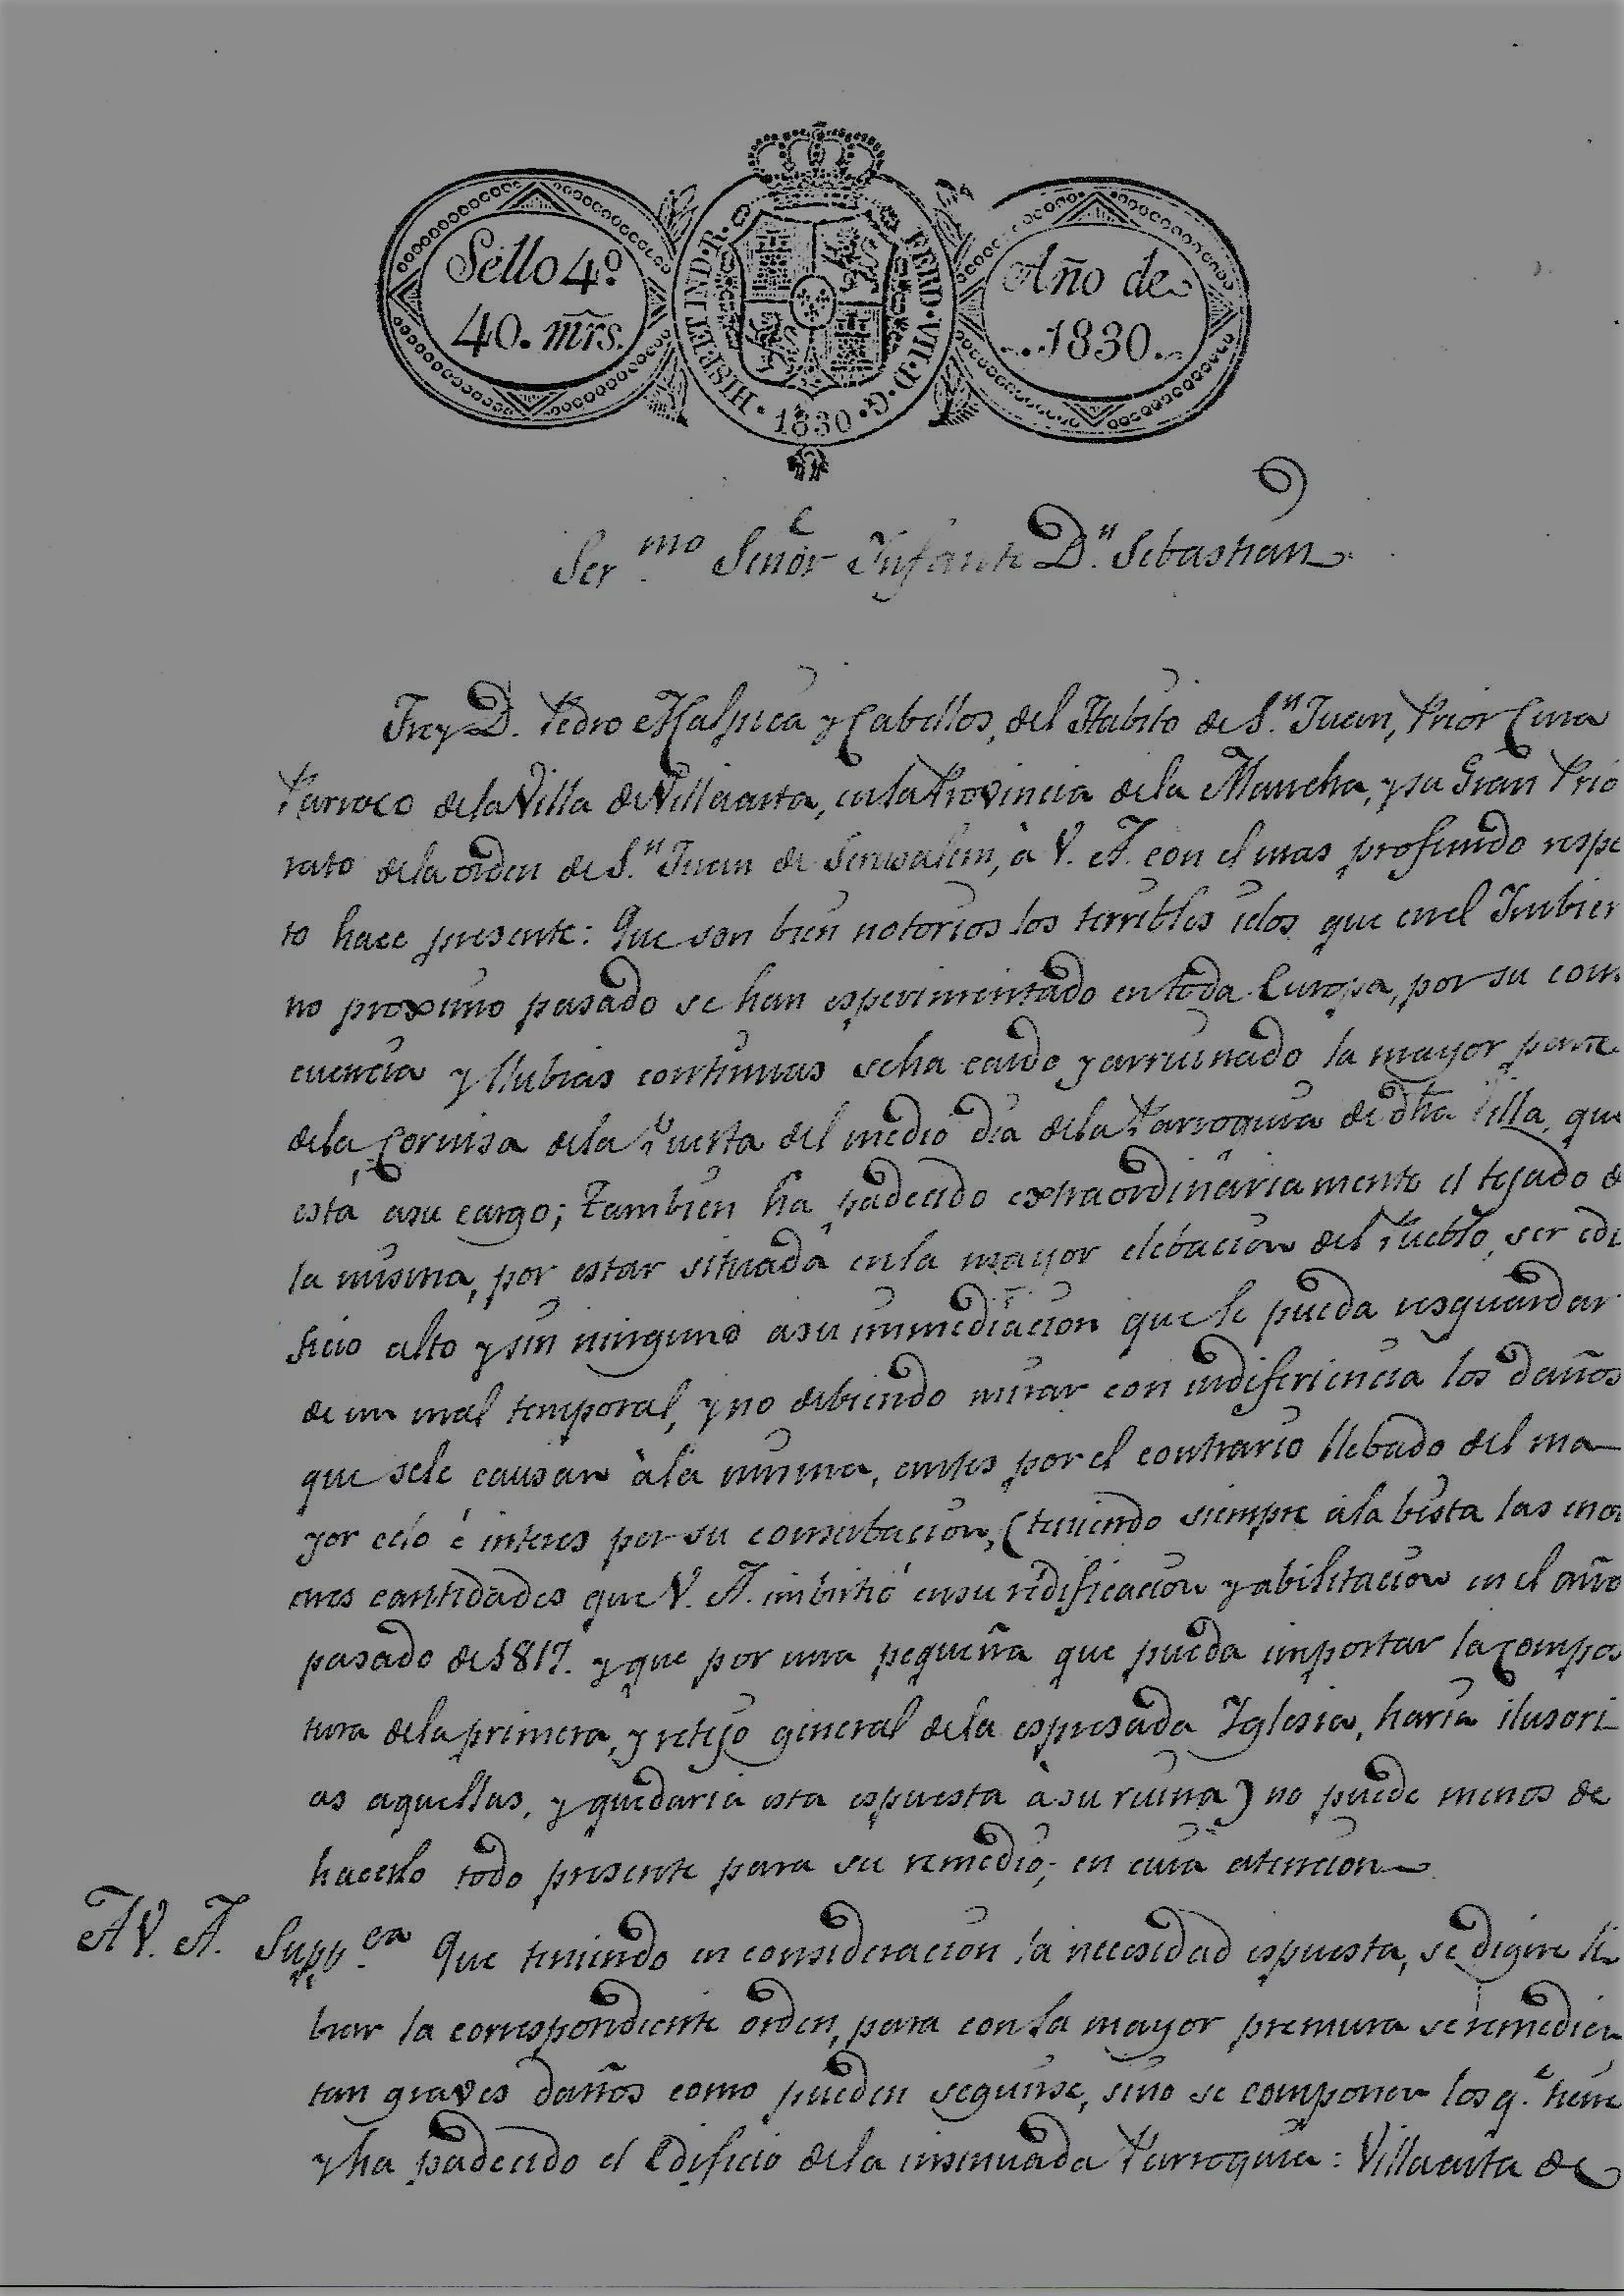 Sello 4º
40. mrs.
HISP. ET IND. R.
FERD. VII. D. G.
1830
Año de
1830.
Ser.mo Señor Infante D.n Sebastian
Frey D. Pedro Malpica y Cabellos, del Habito de S.n Juan, Prior Cura
Parroco de la Villa de Villarta, en la Provincia de la Mancha, y su Gran Prio
rato de la orden de S.n Juan de Jerusalem, à V. A. con el mas profundo respe
to hace presente: Que son bien notorios los terribles ielos que en el Imbier
no proximo pasado se han esperimentado en toda Europa, por su con
cuencia y llubias continuas se ha caido y arruinado la mayor parte
de la Cornisa de la Puerta del medio dia de la Parroquia de dha Villa, que
está a su cargo; tambien ha padecido extraordinariamente el tejado de
la misma, por estar situada en la mayor elebacion del Pueblo, ser edi
ficio alto y sin ninguno a su immediacion que le pueda resguardar
de un mal temporal, y no debiendo mirar con indiferiencia los daños
que se le causan à la misma, antes por el contrario llebado del ma
yor celo é interes por su conserbacion, (teniendo siempre à la bista las enor
mes cantidades que V. A. imbirtió en su redificacion y abilitacion en el año
pasado de 1817. y que por una pequeña que pueda importar la compos
tura de la primera, y retejo general de la espresada Yglesia, haria ilusori
as aquellas, y quedaria esta espuesta à su ruina) no puede menos de
hacerlo todo presente para su remedio; en cuia atencion
A V. A. Supp.ca Que teniendo en consideracion la necesidad espuesta, se digne li
brar la correspondiente orden, para con la mayor premura se remedien
tan graves daños como pueden seguirse, sino se componen los q.e tiene
y ha padecido el Edificio de la insinuada Parroquia: Villarta de